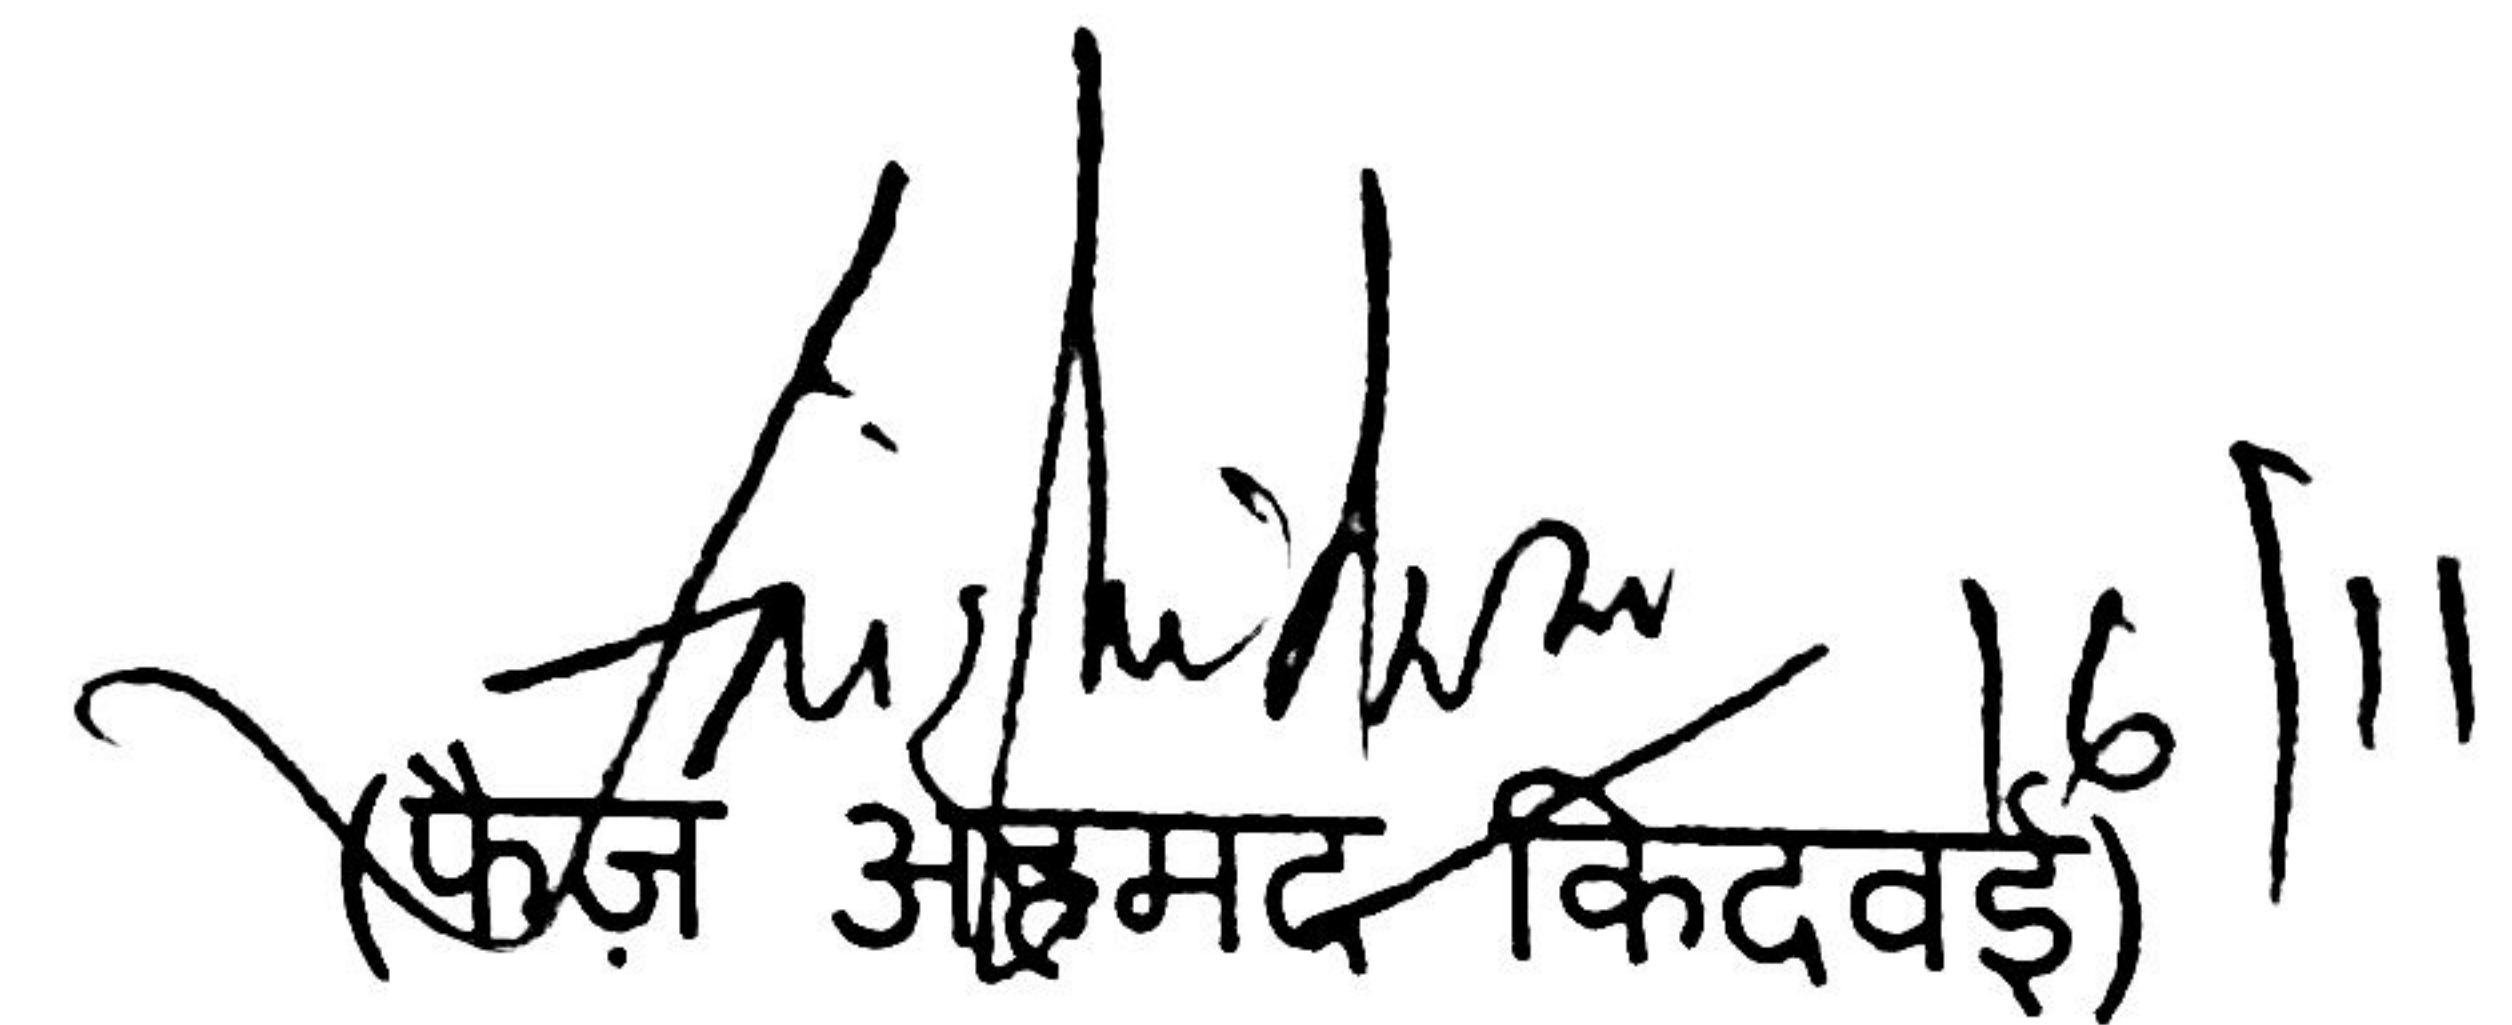 16/11
(फैज़ अहमद किदवई)